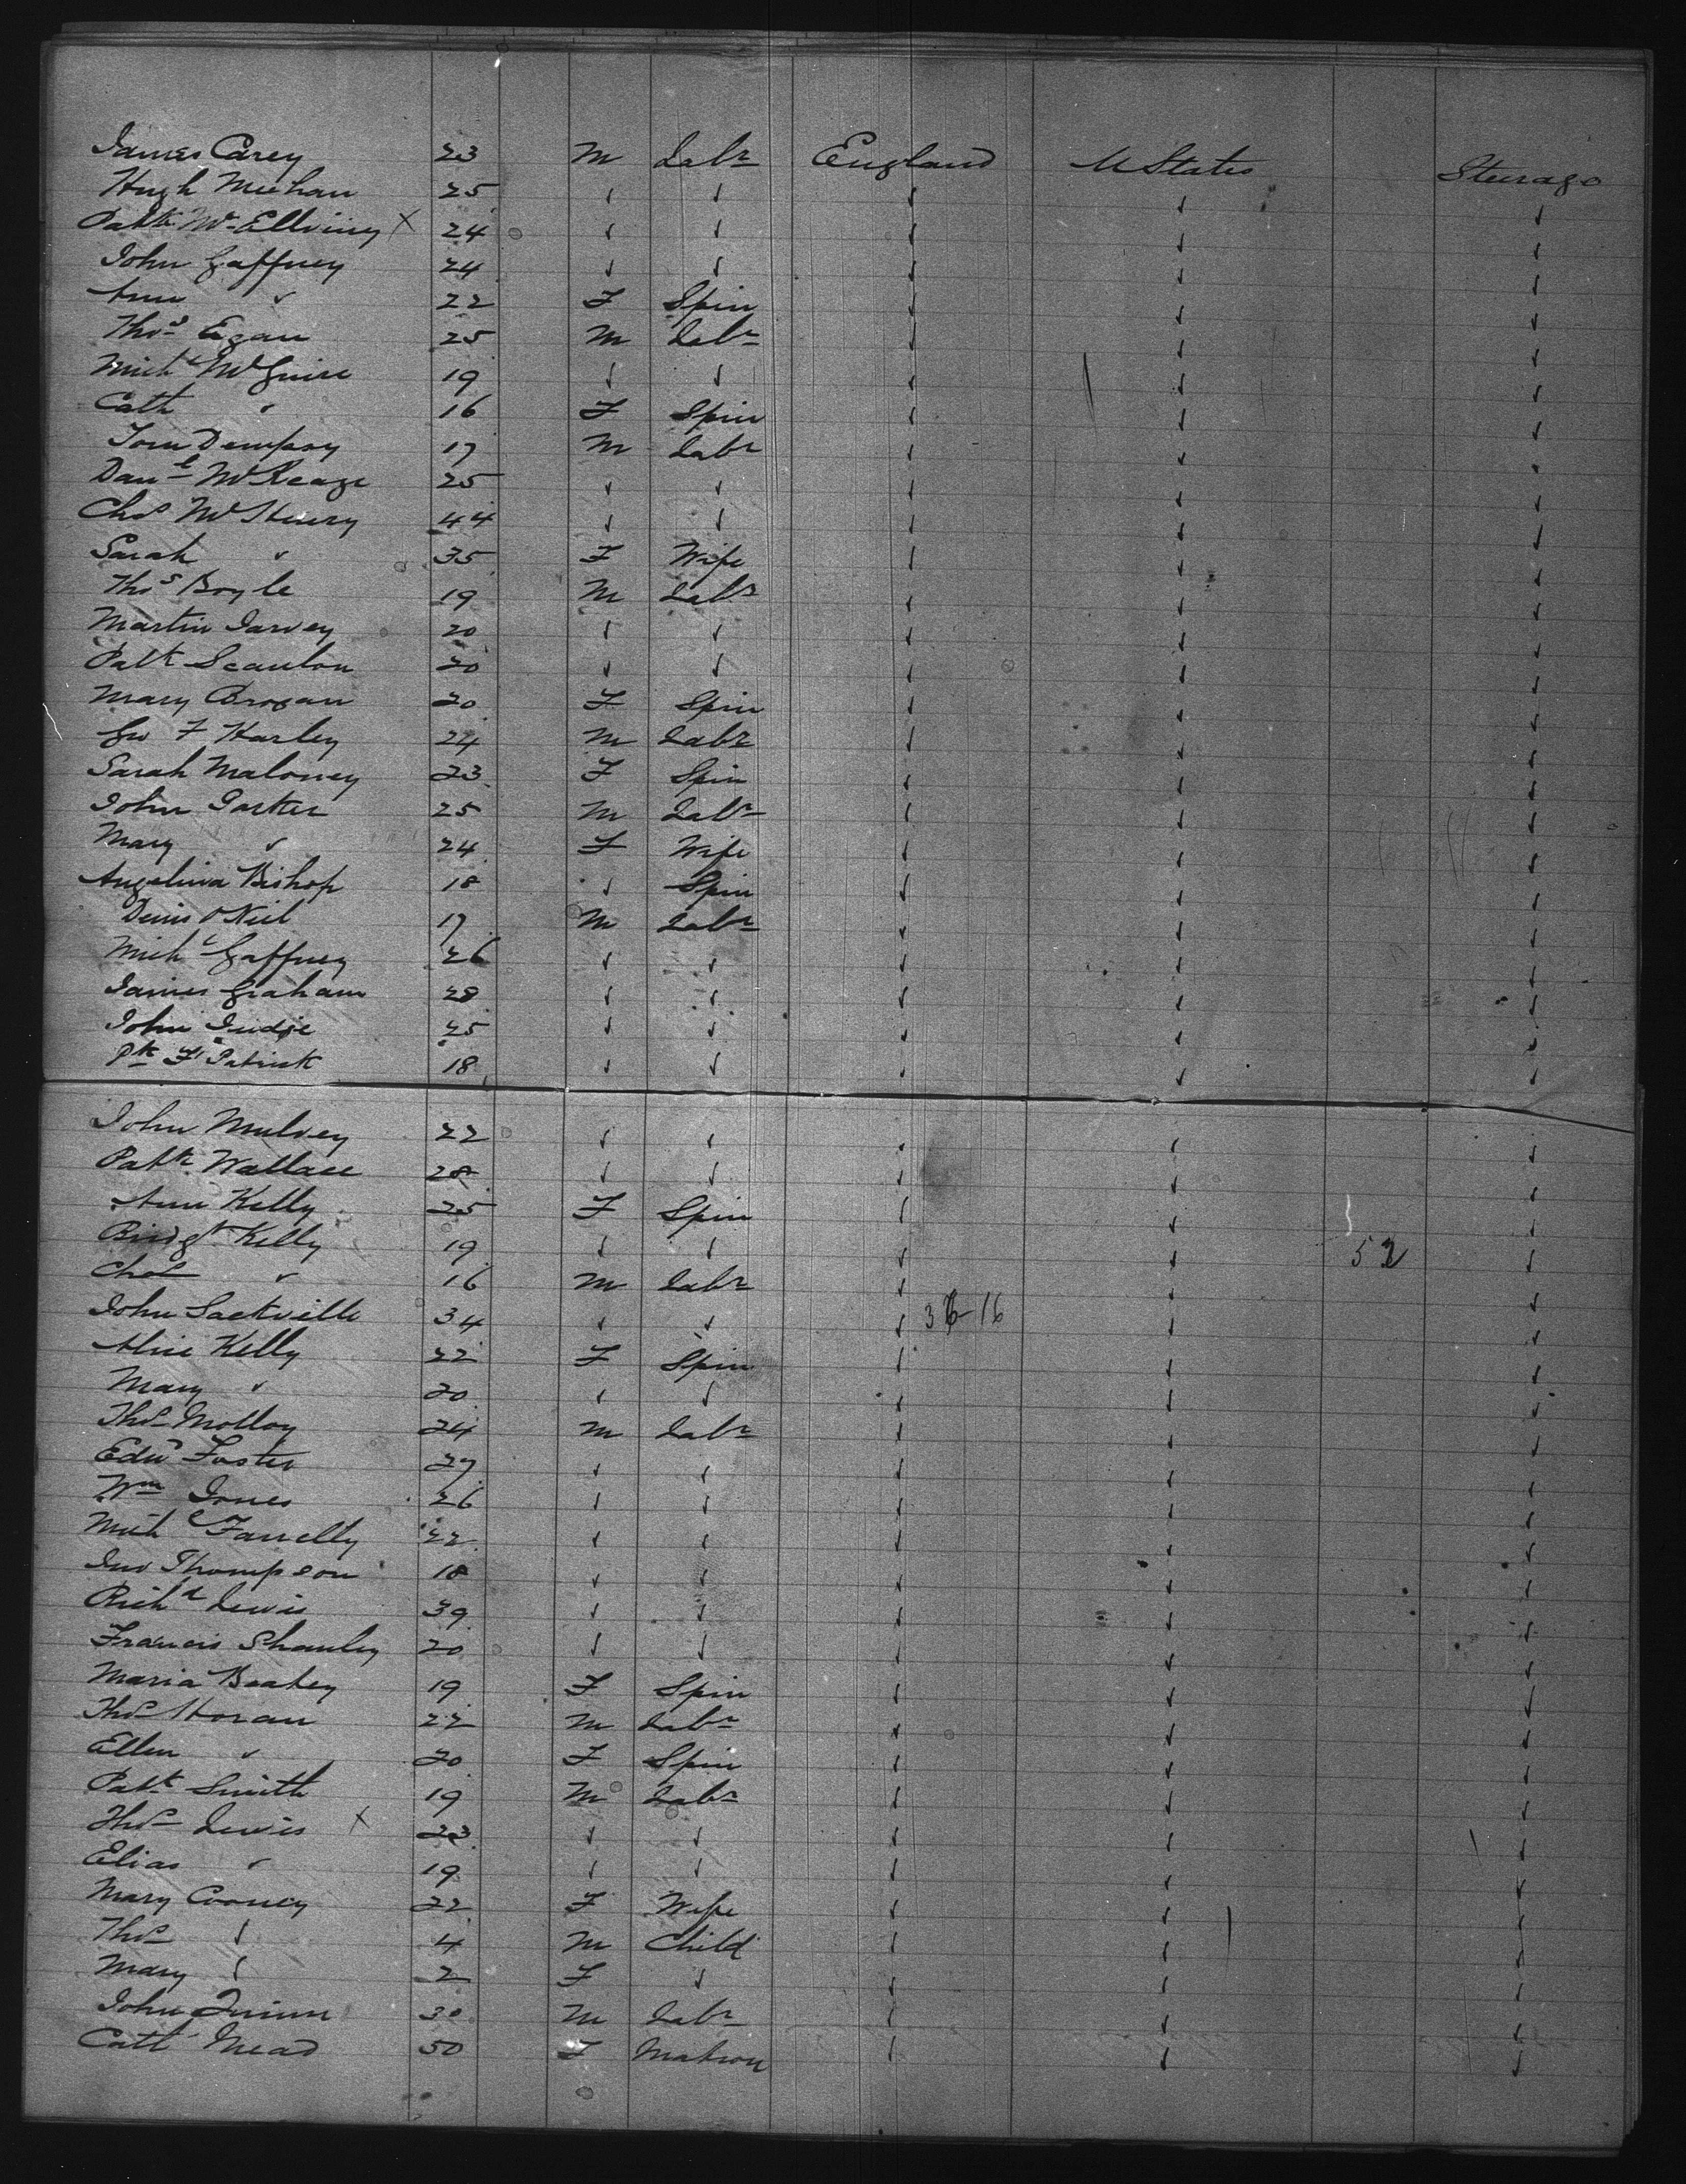 James Carey 23 M Labr England U States Steerage
Hugh Meehan 25 ✓ ✓ ✓ ✓ ✓
Patk McElviny X 24 ✓ ✓ ✓ ✓ ✓
John Gaffney 24 ✓ ✓ ✓ ✓ ✓
Ann ✓ 22 F Spin ✓ ✓ ✓
Thos Egan 25 M Labr ✓ ✓ ✓
Michl McGuire 19 ✓ ✓ ✓ ✓ ✓
Cath ✓ 16 F Spin ✓ ✓ ✓
Tom Dempsy 17 M Labr ✓ ✓ ✓
Danl 25 ✓ ✓ ✓ ✓ ✓
Chas McHenry 44 ✓ ✓ ✓ ✓ ✓
Sarah ✓ 35 F Wife ✓ ✓ ✓
Thos Boyle 19 M Labr ✓ ✓ ✓
Martin Jarvey 20 ✓ ✓ ✓ ✓ ✓
Patk Scanlon 20 ✓ ✓ ✓ ✓ ✓
Mary Brogan 20 F Spin ✓ ✓ ✓
Geo F Harley 24 M Labr ✓ ✓ ✓
Sarah Maloney 23 F Spin ✓ ✓ ✓
John 25 M Labr ✓ ✓ ✓
Mary ✓ 24 F Wife ✓ ✓ ✓
Angelina Bishop 18 ✓ Spin ✓ ✓ ✓
Denis O'Neil 17 M Labr ✓ ✓ ✓
Michl Gaffney 26 ✓ ✓ ✓ ✓ ✓
James Graham 28 ✓ ✓ ✓ ✓ ✓
John Judge 25 ✓ ✓ ✓ ✓ ✓
Pk Fz Patrick 18 ✓ ✓ ✓ ✓ ✓
John Mulvey 22 ✓ ✓ ✓ ✓ ✓
Patk Wallace 28 ✓ ✓ ✓ ✓ ✓
Ann Kelly 25 F Spin ✓ ✓ ✓
Bridgt Kelly 19 ✓ ✓ ✓ ✓ 52 ✓
Chas ✓ 16 M Labr ✓ ✓ ✓
John Sackville 34 ✓ ✓ ✓ 36-16 ✓ ✓
Alice Kelly 22 F Spin ✓ ✓ ✓
Mary ✓ 20 ✓ ✓ ✓ ✓ ✓
Thos Molloy 24 M Labr ✓ ✓ ✓
Edwd Foster 27 ✓ ✓ ✓ ✓ ✓
Wm Jones 26 ✓ ✓ ✓ ✓ ✓
Michl Farrelly 22 ✓ ✓ ✓ ✓ ✓
Jno Thompson 18 ✓ ✓ ✓ ✓ ✓
Richd Lewis 39 ✓ ✓ ✓ ✓ ✓
Francis Shanley 20 ✓ ✓ ✓ ✓ ✓
Maria Beahey 19 F Spin ✓ ✓ ✓
Thos Horan 22 M Labr ✓ ✓ ✓
Ellen ✓ 20 F Spin ✓ ✓ ✓
Patk Smith 19 M Labr ✓ ✓ ✓
Thos Lewis X 23 ✓ ✓ ✓ ✓ ✓
Elias ✓ 19 ✓ ✓ ✓ ✓ ✓
Mary Cooney 22 F Wife ✓ ✓ ✓
Thos ✓ 4 M Child ✓ ✓ ✓
Mary ✓ 2 F ✓ ✓ ✓ ✓
John Quinn 30 M Labr ✓ ✓ ✓
Cath Mead 50 F Matron ✓ ✓ ✓